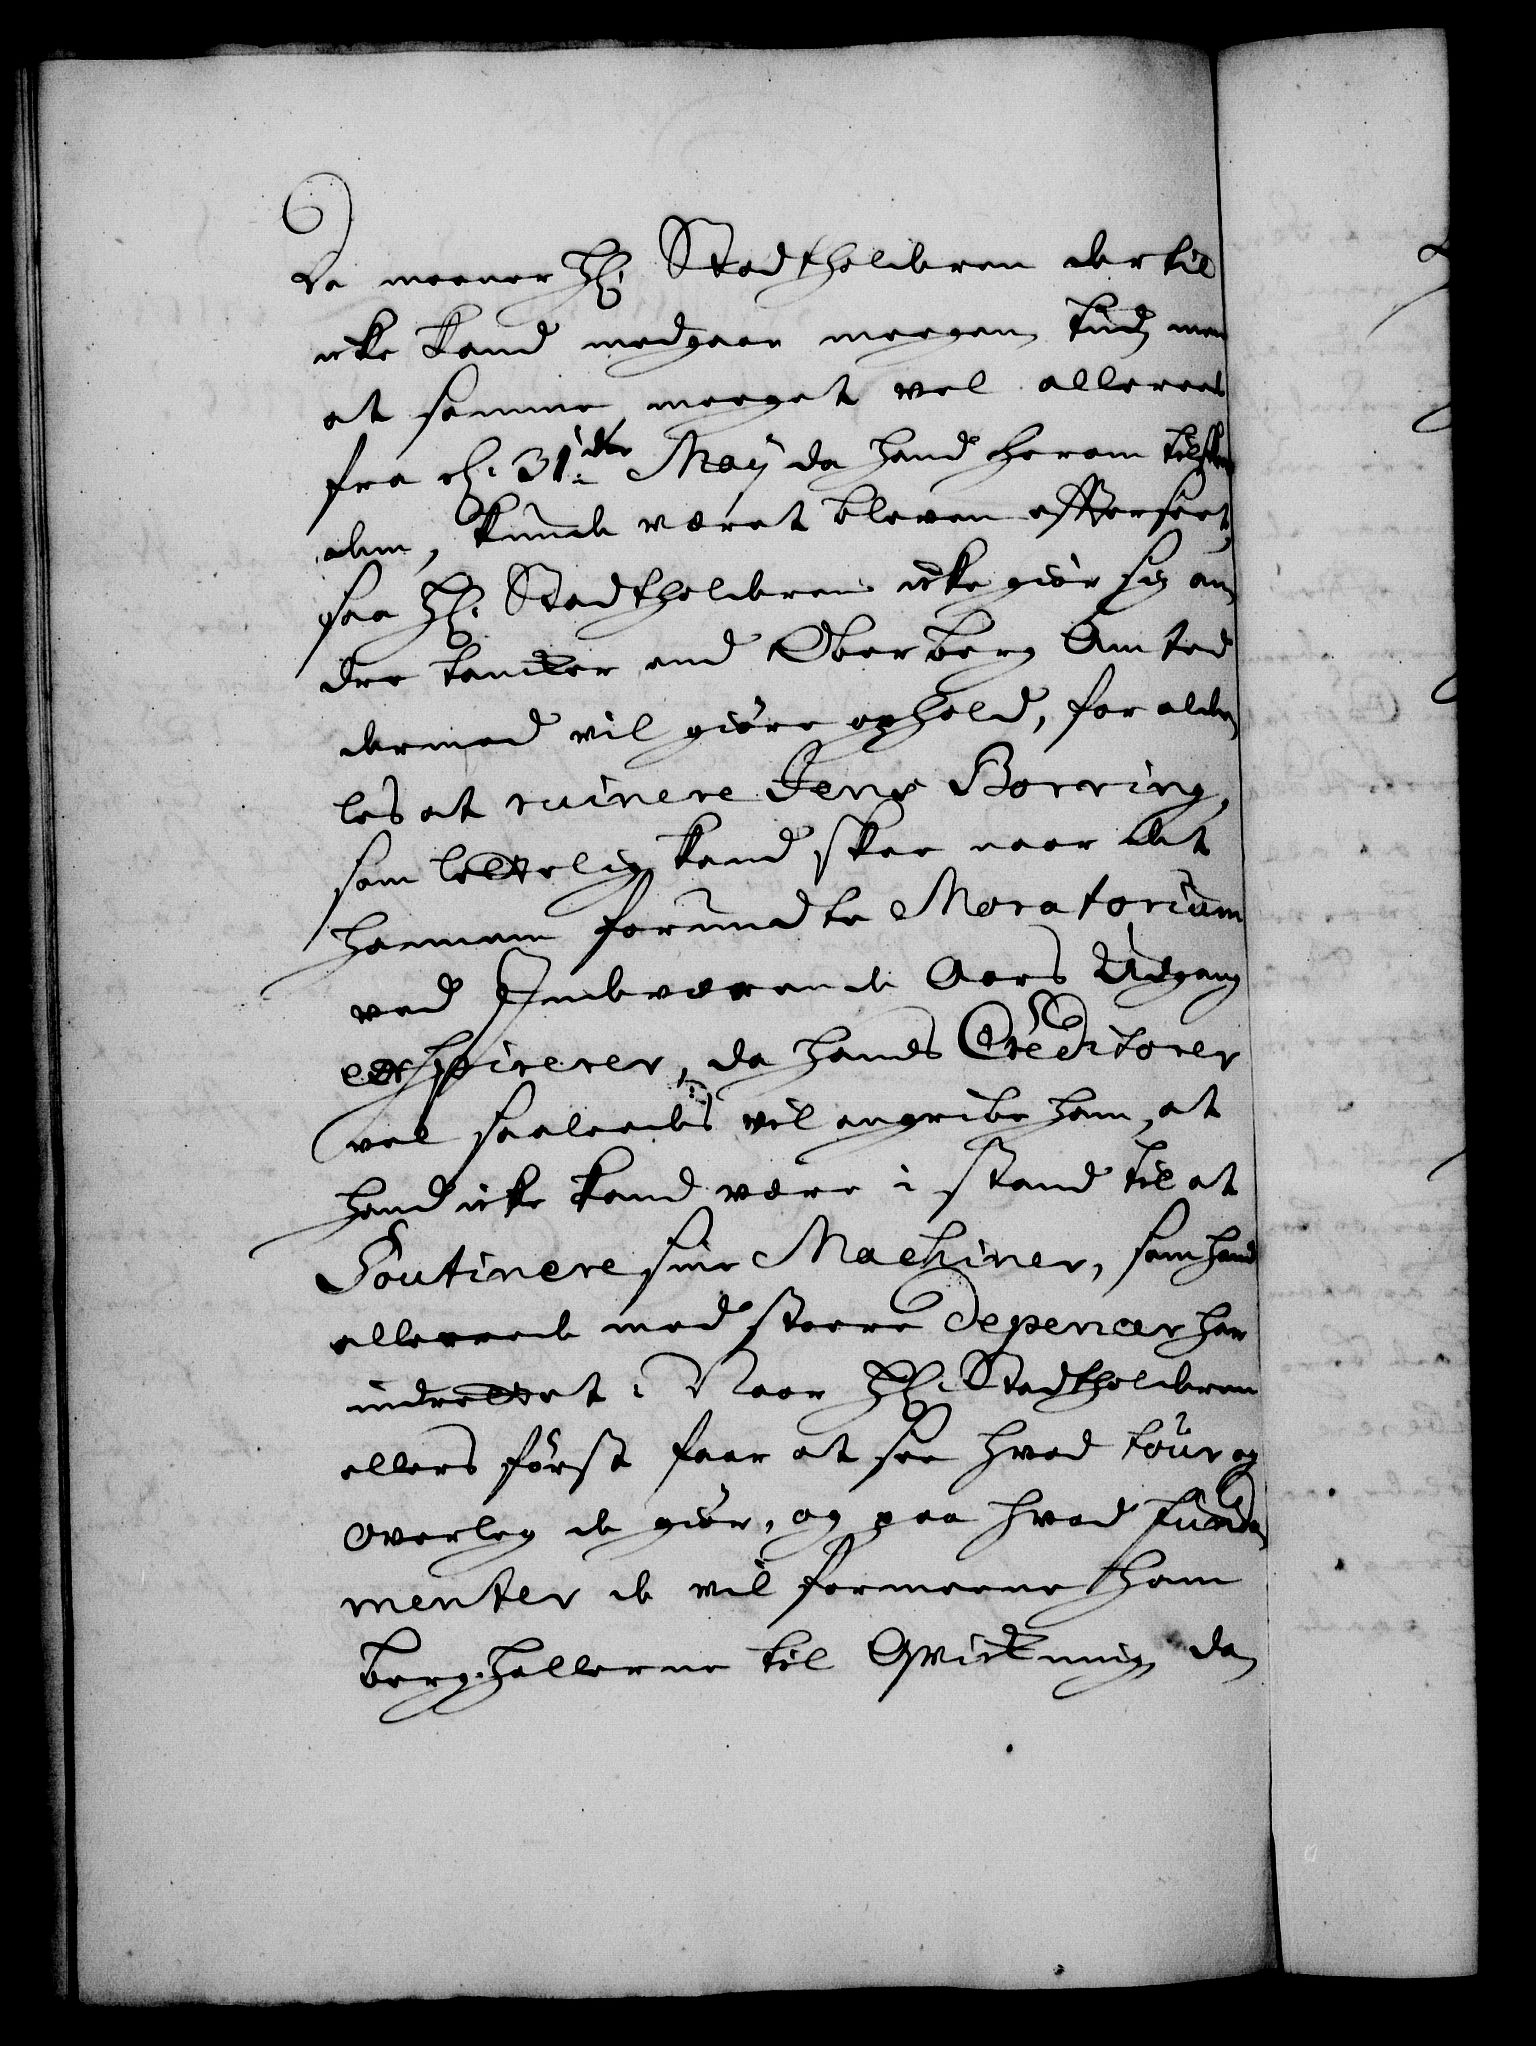 Da meener H: Stadtholderen dertil
icke kand medgaae meegen tiid, men
at samme meeget vel allereede
fra d: 31:de May da hand herom tilskrev
dem, kunde været bleven efterseet,
saa H: Stadtholderen icke giør sig an
dre tancker end OberBerg Amted
dermed vil giøre ophold, for aldee
les at ruinere Jens Borring,
som lettelig kand skee naar det
hannem forundte Moratorium
ved Indeværende Aars Udgang
exspirerer, da hands Creditorer
vel saaleedes vil angribe ham, at
hand icke kand være i stand til at
Soutinere sine Machiner, som hand
allereede med stoere Depencer har
indrettet: Naar H: Stadtholderen
ellers først faar at see hvad tour og
overleg de giør, og paa hvad funda
menter de vil formeene ham
berg-hallerne til Qvickning, da